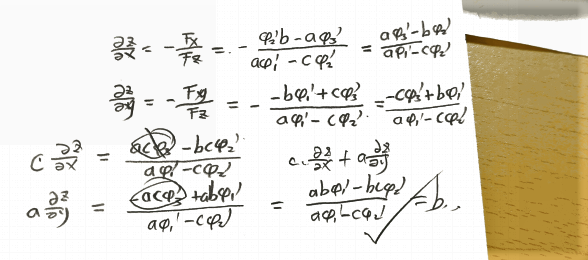 ∂z/∂x = - Fx/Fz = - (φ₂'b - aφ₃')/(aφ₁' - cφ₂') = (aφ₃' - bφ₂')/(aφ₁' - cφ₂')
∂z/∂y = - Fy/Fz = - (-bφ₁' + cφ₃')/(aφ₁' - cφ₂') = (-cφ₃' + bφ₁')/(aφ₁' - cφ₂')
c ∂z/∂x = (acφ₃' - bcφ₂')/(aφ₁' - cφ₂') c·∂z/∂x + a ∂z/∂y
a ∂z/∂y = (-acφ₃' + abφ₁')/(aφ₁' - cφ₂') = (abφ₁' - bcφ₂')/(aφ₁' - cφ₂') = b.